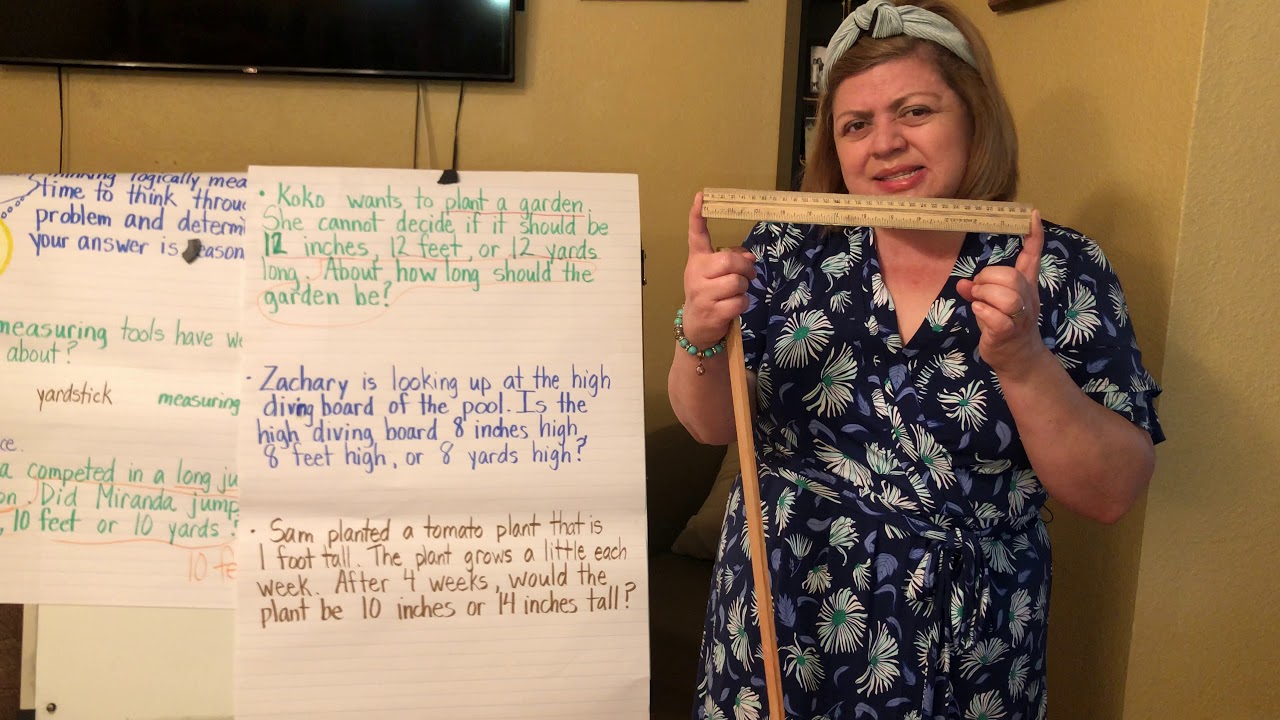 thinking logically mea
time to think throu
problem and determi
your answer is reason
measuring tools have we
about?
yardstick measuring
ce.
a competed in a long ju
on. Did Miranda jump
, 10 feet or 10 yards?
10 fe
• Koko wants to plant a garden.
She cannot decide if it should be
12 inches, 12 feet, or 12 yards
long. About, how long should the
garden be?
• Zachary is looking up at the high
diving board of the pool. Is the
high diving board 8 inches high,
8 feet high, or 8 yards high?
• Sam planted a tomato plant that is
1 foot tall. The plant grows a little each
week. After 4 weeks, would the
plant be 10 inches or 14 inches tall?